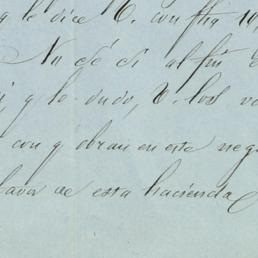 q le dice C. con fha 10,
No sé si al fin
y lo dudo, V. los
con q obran en este neg
favor de esta hacienda